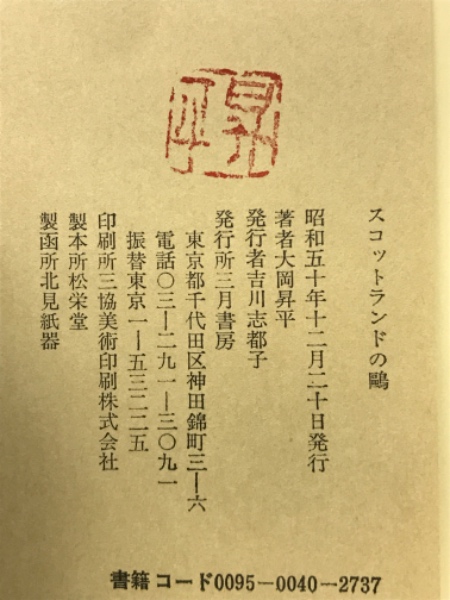 スコットランドの鷗
昭和五十年十二月二十日発行
著者大岡昇平
発行者吉川志都子
発行所三月書房
東京都千代田区神田錦町三ー六
電話〇三ー二九一ー三〇九一
振替東京一ー五三二二五
印刷所三協美術印刷株式会社
製本所松栄堂
製函所北見紙器
書籍コード0095ー0040ー2737